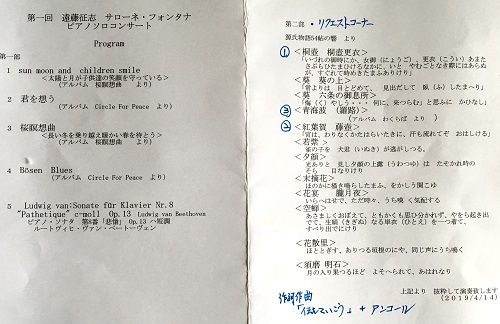 第一回 遠藤征志 サローネ・フォンタナ
ピアノソロコンサート
Program
第一部
1 sun moon and children smile
<太陽と月が子供達の笑顔を守っている>
(アルバム 桜瞑想曲 より)
2 君を想う
(アルバム Circle For Peace より)
3 桜瞑想曲
<長い冬を乗り越え暖かい春を待とう>
(アルバム 桜瞑想曲 より)
4 Bösen Blues
(アルバム Circle For Peace より)
5 Ludwig van:Sonate für Klavier Nr.8
"Pathetique" c-moll Op.13 Ludwig van Beethoven
ピアノ・ソナタ 第8番「悲愴」Op.13 ハ短調
ルートヴィヒ・ヴァン・ベートーヴェン
第二部 ・リクエストコーナー
源氏物語54帖の響 より
① <桐壷 桐壺更衣>
「いづれの御時にか、女御(にょうご)、更衣(こうい)あまた
さぶらひたまひけるなかに、いと やむごとなき際にはあらぬ
が、すぐれて時めきたまふありけり」
<葵 葵の上>
<葵 六条の御息所>
③ <青海波(羅路)>
(アルバム わくらば より)
② <紅葉賀 藤壺>
<若紫>
雀の子を 犬君(いぬき)が逃がしつる。
<夕顔>
光ありと 見し夕顔の上露(うわつゆ)は たそかれ時の
そら 目なりけり
<末摘花>
ほのかに掻き鳴らしたまふ、をかしう聞こゆ
<花宴 朧月夜>
いらへはせで、ただ時々、うち嘆く気配する
<空蝉>
あさましくおぼえて、ともかくも思ひ分かれず、やをら起き出
でて、生絹(すずし)なる単衣(ひとえ)を一つ着て、
すべり出でにけり
<花散里>
ほととぎす、ありつる垣根のにや、同じ声にうち鳴く
<須磨 明石>
月の入り果つるほど よそへられて、あはれなり
上記より 抜粋して演奏致します
(2019/4/14)
「伝えていこう」 + アンコール